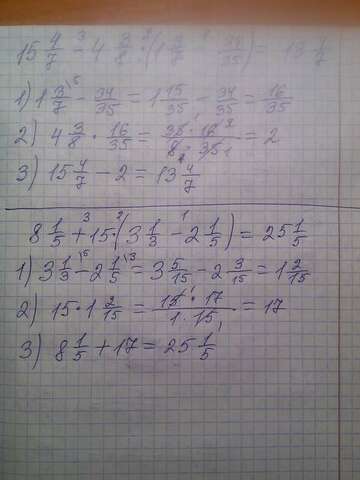 15 4/7 - 4 3/8 · (1 3/7 - 34/35) = 13 4/7
1) 1 3/7 - 34/35 = 1 15/35 - 34/35 = 16/35
2) 4 3/8 · 16/35 = 35 · 16 / 8 · 35 = 2
3) 15 4/7 - 2 = 13 4/7
8 1/5 + 15 · (3 1/3 - 2 1/5) = 25 1/5
1) 3 1/3 - 2 1/5 = 3 5/15 - 2 3/15 = 1 2/15
2) 15 · 1 2/15 = 15 · 17 / 1 · 15 = 17
3) 8 1/5 + 17 = 25 1/5